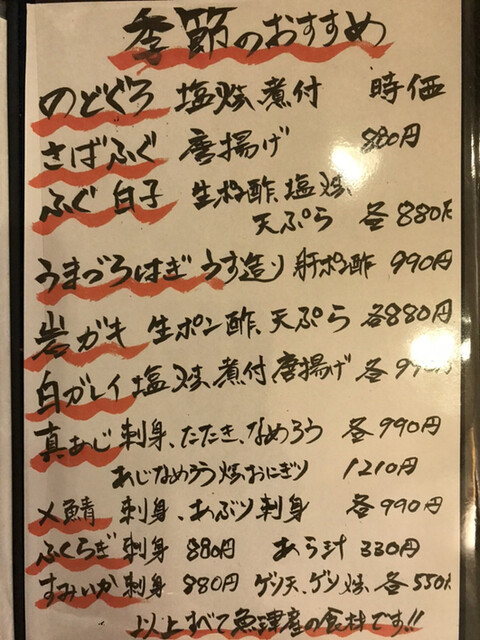 季節のおすすめ
のどぐろ 塩焼、煮付 時価
さばふぐ 唐揚げ 880円
ふぐ白子 生ポン酢、塩焼
天ぷら 各880円
うまづらはぎ うす造り 肝ポン酢 990円
岩ガキ 生ポン酢、天ぷら 各880円
白ガレイ 塩焼、煮付 唐揚げ 各990円
真あじ 刺身、たたき、なめろう 各990円
あじなめろう焼おにぎり 1210円
〆鯖 刺身、あぶり刺身 各990円
ふくらぎ 刺身 880円 あら汁 330円
すみいか 刺身 880円 ゲソ天、ゲソ焼、各550円
以上すべて魚津産の食材です!!